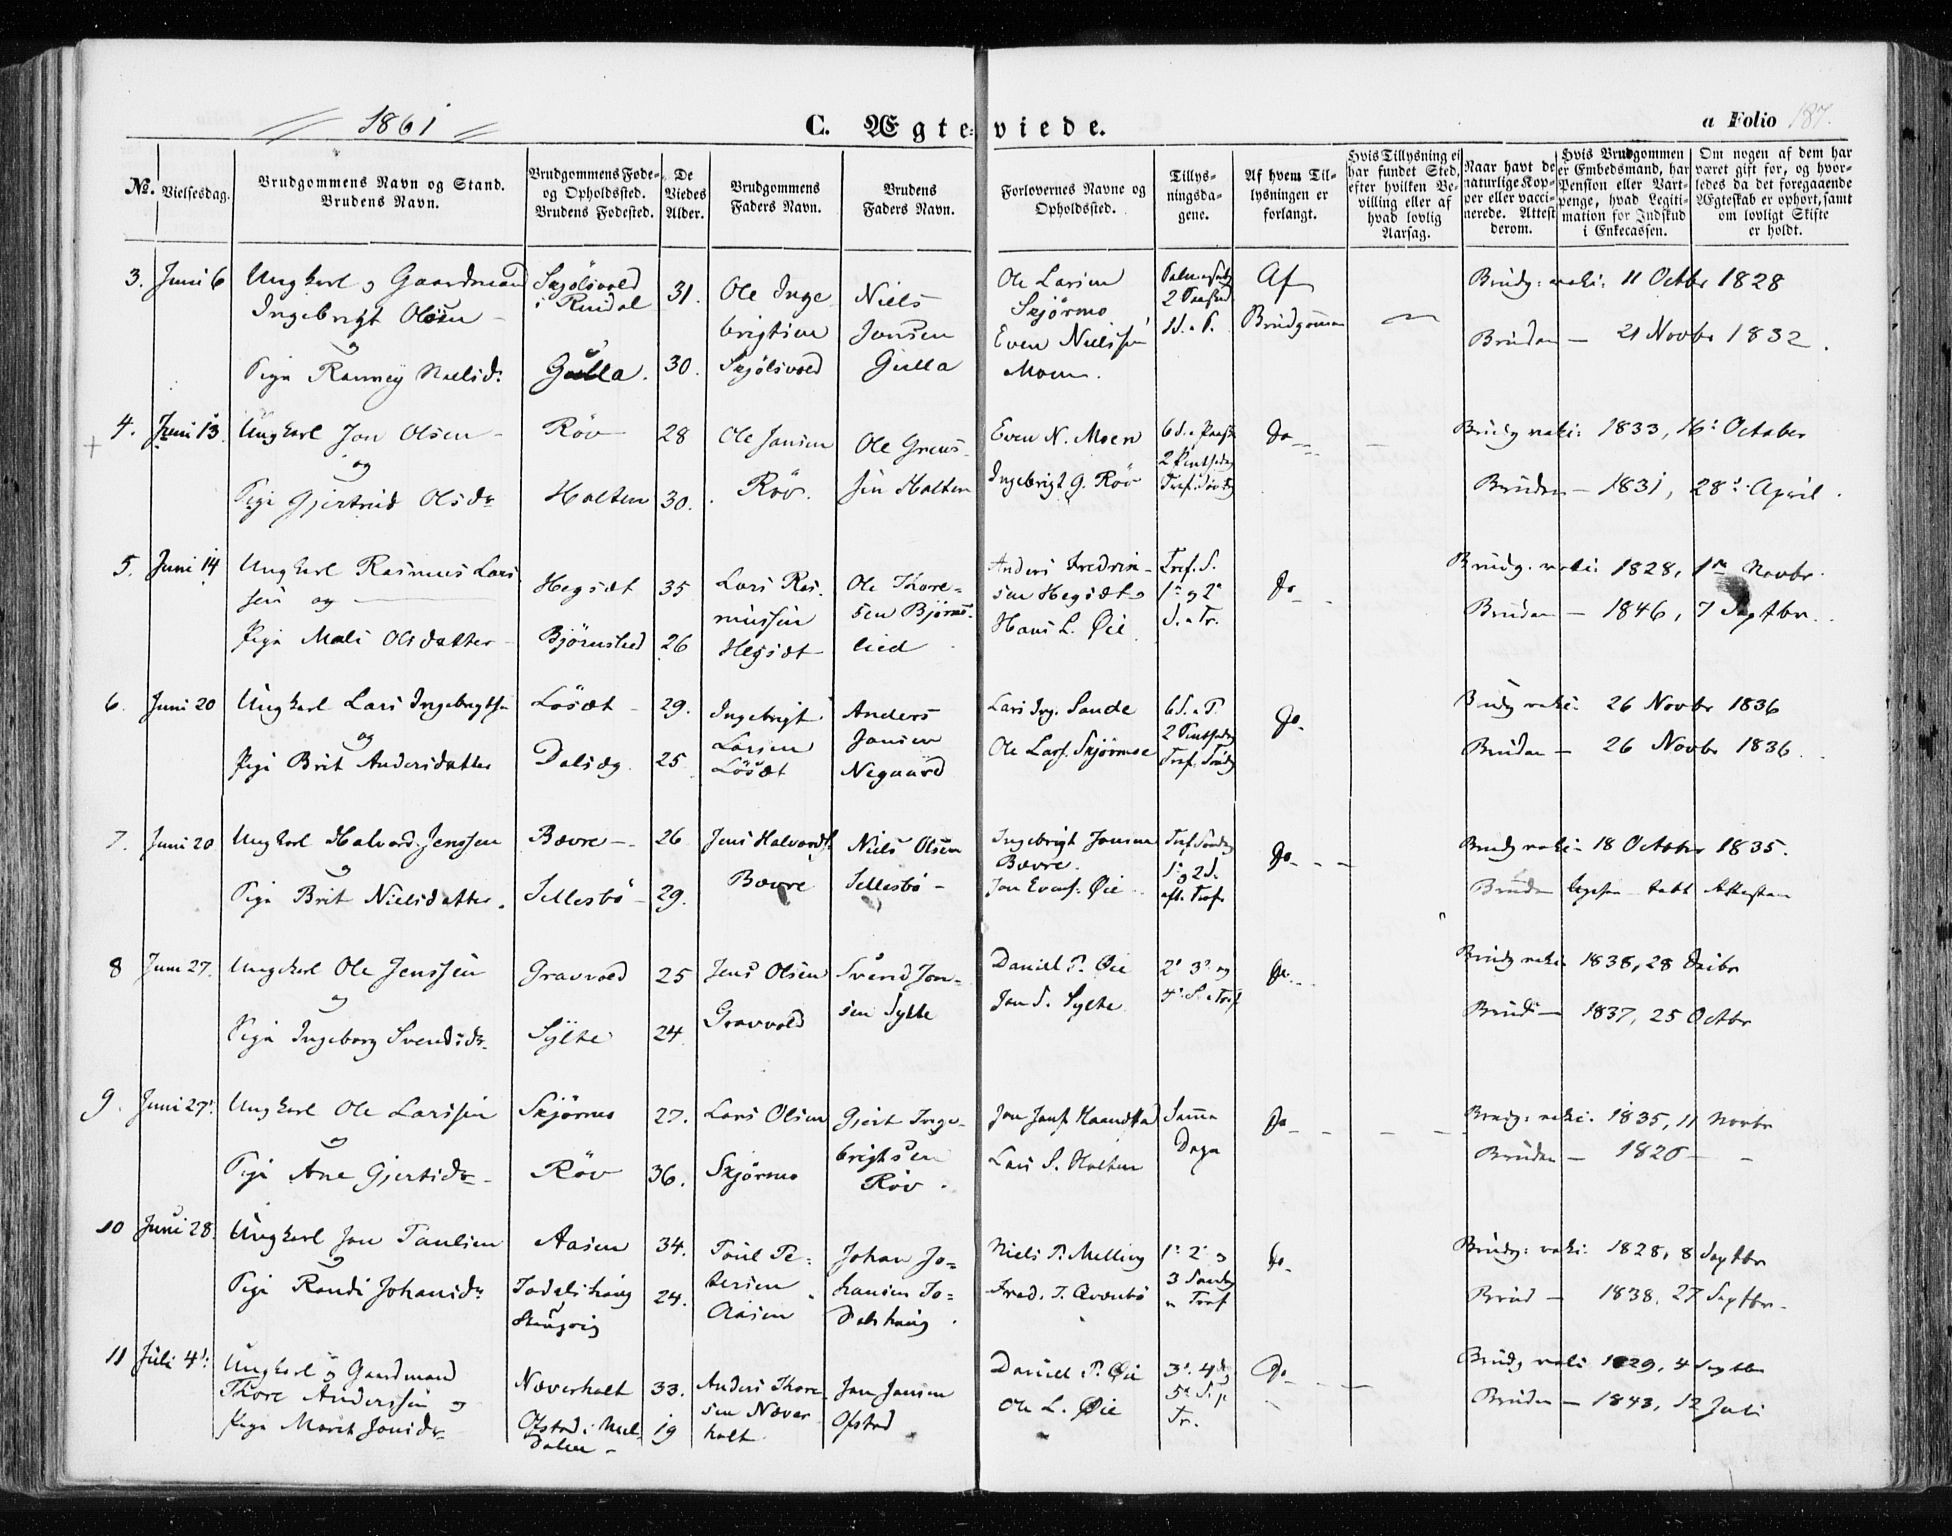 1861
C. Ægteviede.
a Folio 187.
No.
Vielsesdag.
Brudgommens Navn og Stand.
Brudens Navn.
Brudgommens Føde-
og Opholdssted.
Brudens Fødested.
De
Viedes
Alder.
Brudgommens
Faders Navn.
Brudens
Faders Navn.
Forlovernes Navne og
Opholdssted.
Tillys-
ningsda-
gene.
Af hvem Til-
lysningen er
forlangt.
Hvis Tillysning ei
har fundet Sted,
efter hvilken Be-
villing eller af
hvad lovlig
Aarsag.
Naar havt de
naturlige Kop-
per eller vacci-
nerede. Attest
derom.
Hvis Brudgommen
er Embedsmand, har
Pension eller Vart-
penge, hvad Legiti-
mation for Indskud
i Enkecassen.
Om nogen af dem har
været gift før, og hvor-
ledes da det foregaaende
Ægteskab er ophørt, samt
om lovligt Skifte
er holdt.
3. Juni 6
Ungkarl og Gaardmand
Ingebrigt Olsen
og
Pige Ranney Nielsdr
Skjølsvold
i Rindal
Gulla.
31.
30.
Ole Inge
brigtsen
Skjølsvold
Niels
Jonsen
Gulla
Ole Larsen
Skjørmo
Even Nielsen
Moen.
2 Paaskd
Af
Brudgommen
Brudg: vaki: 11 Octbr 1828
Bruden — 21 Novbr 1832.
4. Juni 13
Ungkarl Jon Olsen
og
Pige Gjertrud Olsdr
Røv
Halten
28
30.
Ole Jonsen
Røv.
Ole Greus-
sen Halten
Even N. Moen
Ingebrigt G. Røv
6 S. e. Paaske
2 Pintsedag
Tref. Søndg
Do
Brudg vaki: 1833, 16: October
Bruden — 1831, 28: April.
5. Juni 14
Ungkarl Rasmus Lars
sen og
Pige Mali Olsdatter
Hegsæt
Bjørnslied
35
26
Lars Ras-
mussen
Hegsæt
Ole Thore-
sen Bjørns-
lied
Anders Fredrik-
sen Hegsæt
Hans L. Øie
Tref. S.
1: og 2:
S. e. Tr.
Do
Brudg. vaki: 1828, 1ste Novbr.
Bruden — 1846, 7 Septbr.
6. Juni 20
Ungkarl Lars Ingebrigts
og
Pige Brit Andersdatter
Løsæt
Dalsæg
29.
25
Ingebrigt
Larsen
Løsæt
Anders
Jonsen
Negaard
Lars Ing. Sande
Ole Lars. Skjørmoe
6 S. e. P.
2 Pintsedag
Tref. Søndg
Do
Brudg vaki: 26 Novbr 1836
Bruden — 26 Novbr 1836.
7. Juni 20
Ungkarl Halvard Jenssen
og
Pige Brit Nielsdatter.
Bævre
Sellesbø
26
29.
Jens Halvords.
Bævre
Niels Olsen
Sellesbø
Ingebrigt Jonsen
Bævre.
Jon Evens. Øie
Tref Søndag
1: og 2 S.
eft. Tref.
Do
Brudg vaki: 18 October 1835.
Bruden ligesaa tabt Attesten
8 Juni 27.
Ungkarl Ole Jenssen
og
Pige Ingeborg Svendsdr
Gravvold
Sylte
25
24
Jens Olsen
Gravvold
Svend Jon-
sen Sylte
Daniel P. Øie
Jon S. Sylte
2: 3: og
4: S. e Tref
Do
Brudg vaki. 1838, 28 Dsibr
Brud — 1837, 25 Octbr
9. Juni 27:
Ungkarl Ole Larssen
og
Pige Ane Gjertsdr
Skjørmo
Røv
27.
36.
Lars Olsen
Skjørmo
Gjert Inge-
brigtsen
Røv.
Lars S. Halten
Samme
Dage
Do
Brudg: vaki: 1835, 11 Novbr
Bruden — 1826 —
10 Juni 28.
Ungkarl Jon Paulsen
og
Pige Randi Johansdr
Aasen
Todalshaug
Stangvig
34.
24.
Poul Pe-
tersen
Aasen
Johan Jo-
hansen To-
dalshaug.
Niels P. Melling
Fred. T. Qvænbø
1: 2: og
3 Søndag
e Tref
Do
Brudg: vaki: 1828, 8 Septbr
Brud — 1838, 27 Septbr.
11 Juli 4:
Ungkarl og Gaardmand
Thore Anderssen og
Pige Marit Jonsdr
Næverholt
Ofstad i Mel-
dalen
33.
19
Anders Thore
sen Næver
holt
Jon Jonsen
Ofstad
Daniel P. Øie
Ole L. Øie
3: 4de og
5te S. p
Tr.
Do
Brudg vaki 1829, 4 Septbr
Bruden — 1843, 12 Juli